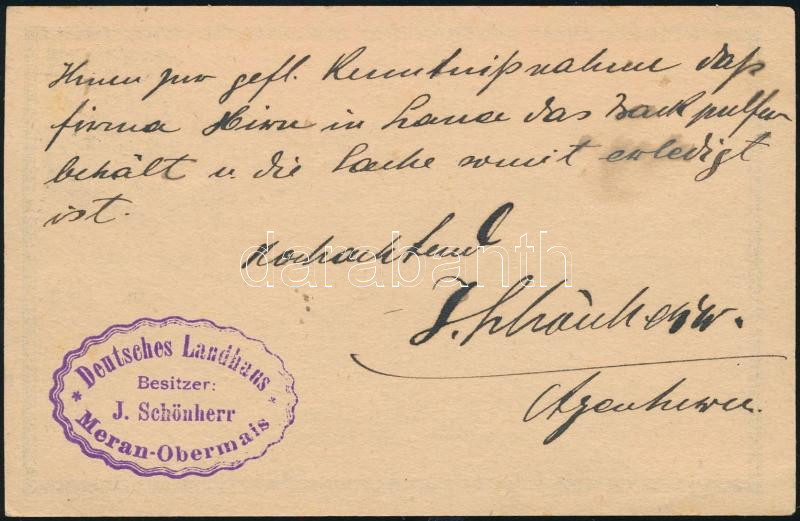 Ihnen zur gefl. Kenntnißnahme daß
firma Hirn in Lana das Backpulfer
behält u. die Sache somit erledigt
ist.
Hochachtend
J. Schönherr.
Agenturen.
darabanth
Deutsches Landhaus
Besitzer:
J. Schönherr
Meran-Obermais